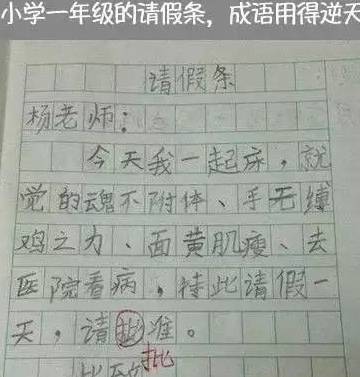 小学一年级的请假条，成语用得逆天
请假条
杨老师：
今天我一起床，就
觉的魂不附体、手无缚
鸡之力、面黄肌瘦、去
医院看病，特此请假一
天，请批准。
批